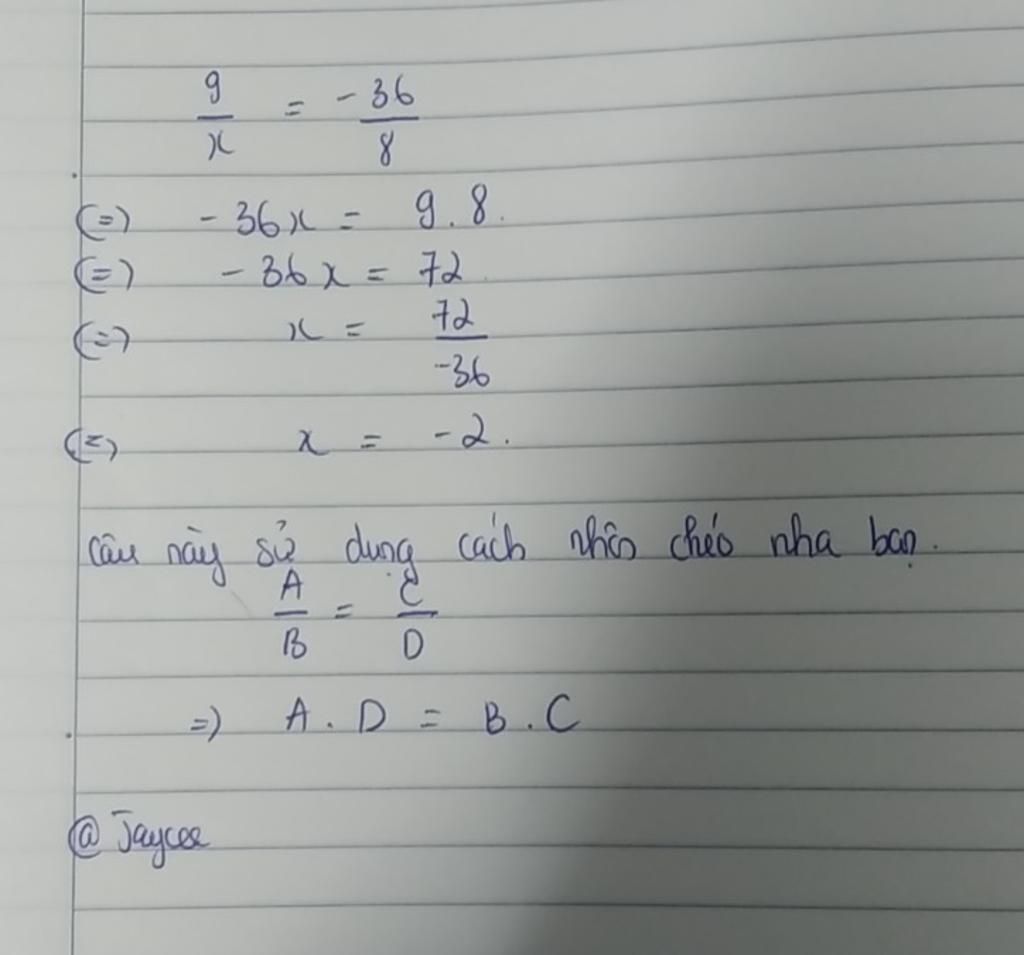 9/x = -36/8
(=) -36x = 9.8.
(=) -36x = 72
(=) x = 72/-36
(=) x = -2.
Câu này sử dụng cách nhân chéo nha bạn.
A/B = C/D
=) A . D = B . C
@Jaycee